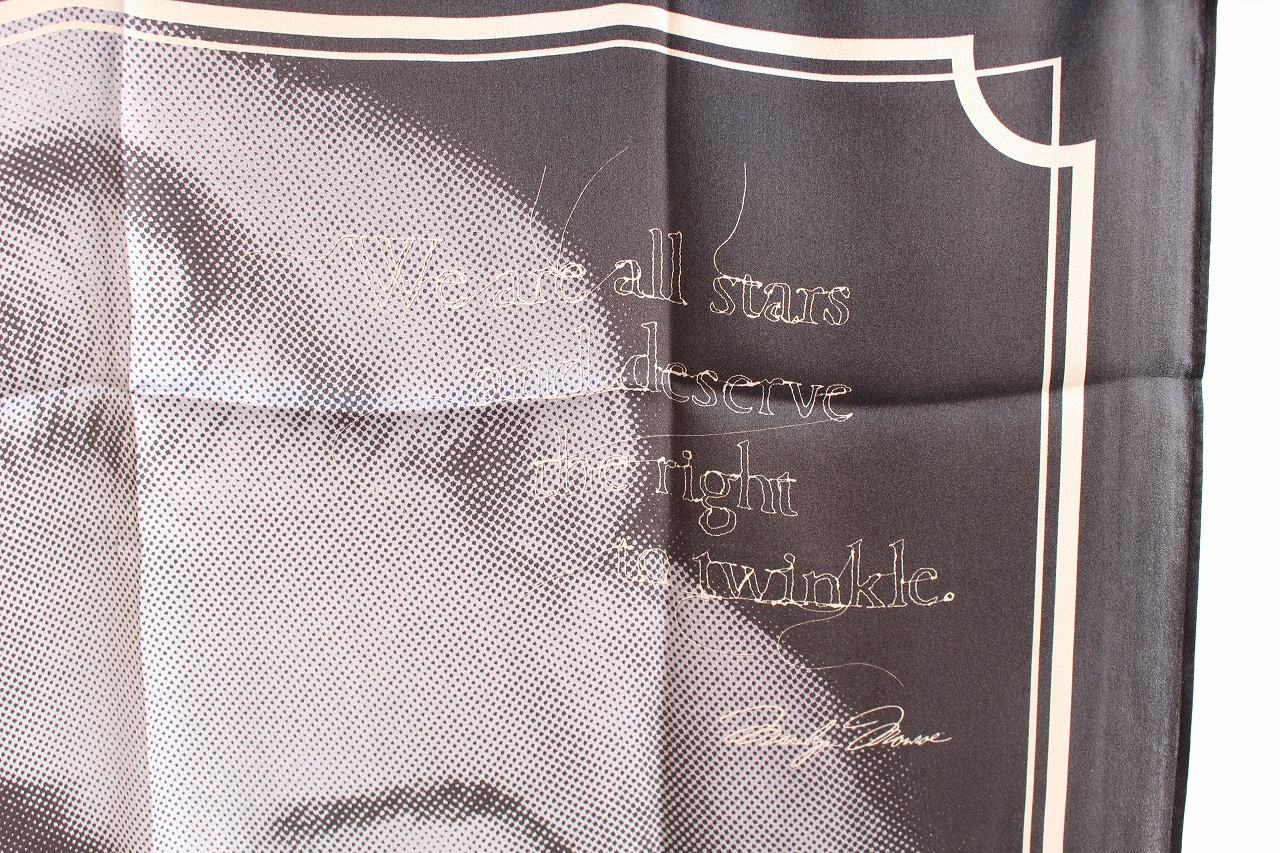 We are all stars
and deserve
the right
to twinkle.
Marilyn Monroe